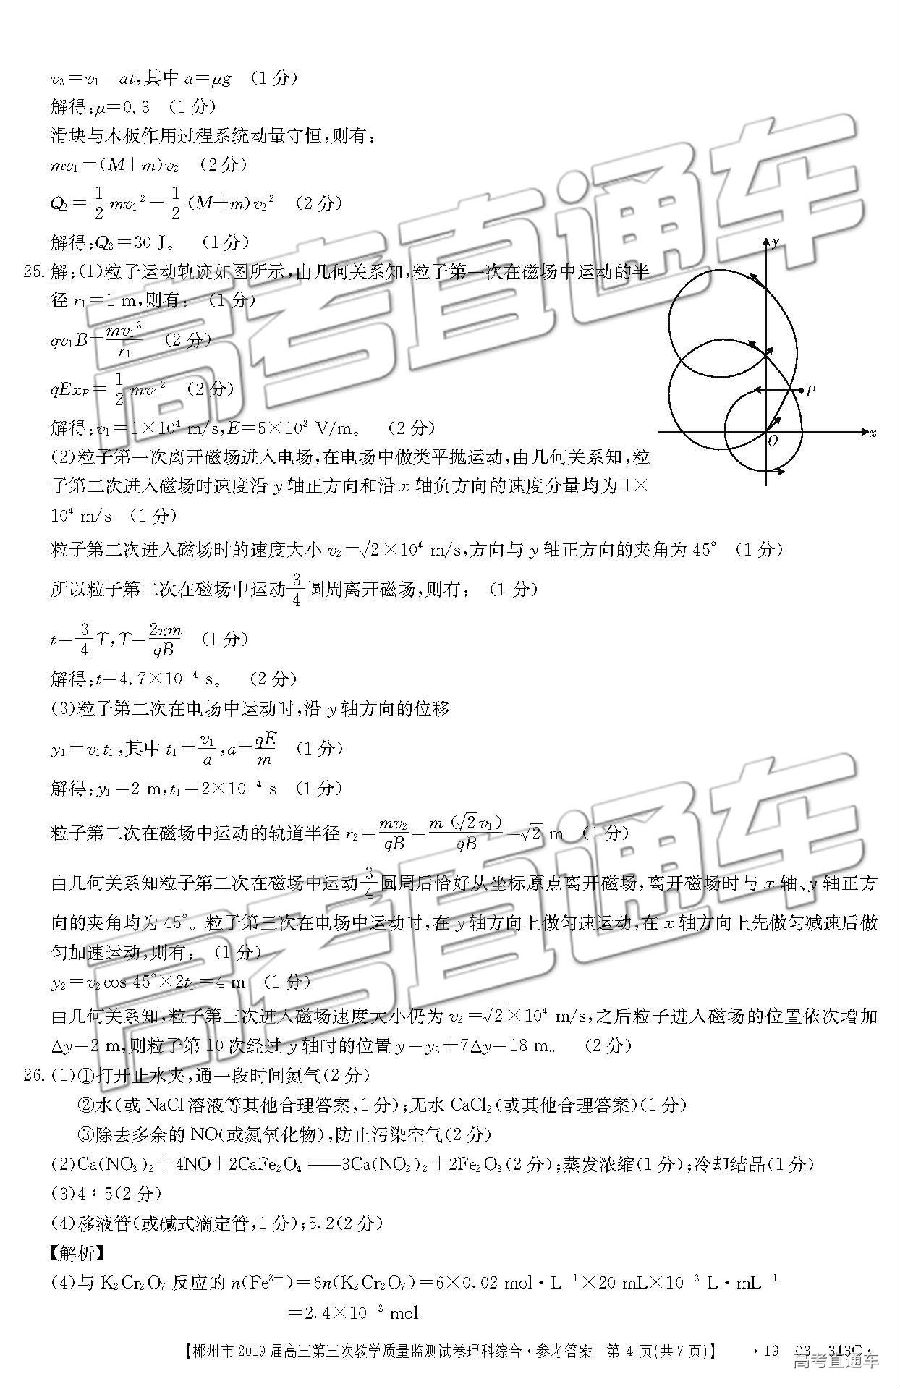 v₂=v₁ at,其中 a=μg (1 分)
解得:μ=0.3 (1 分)
滑块与木板作用过程系统动量守恒,则有:
mv₁=(M+m)v₂ (2 分)
Q₂=1/2 mv₁²-1/2(M+m)v₂² (2 分)
解得:Q₂=30 J。 (1 分)
25.解:(1)粒子运动轨迹如图所示,由几何关系知,粒子第一次在磁场中运动的半
径 r₁=1 m,则有: (1 分)
qv₁B=mv₁²/r₁ (2 分)
qExₚ=1/2 mv₁² (2 分)
解得:v₁=1×10⁴ m/s,E=5×10³ V/m。 (2 分)
(2)粒子第一次离开磁场进入电场,在电场中做类平抛运动,由几何关系知,粒
子第二次进入磁场时速度沿 y 轴正方向和沿 x 轴负方向的速度分量均为 1×
10⁴ m/s (1 分)
粒子第二次进入磁场时的速度大小 v₂=√2×10⁴ m/s,方向与 y 轴正方向的夹角为 45° (1 分)
所以粒子第二次在磁场中运动3/4圆周离开磁场,则有: (1 分)
t=3/4 T,T=2πm/qB (1 分)
解得:t=4.7×10⁻⁴ s。 (2 分)
(3)粒子第二次在电场中运动时,沿 y 轴方向的位移
y₁=v₁t₁,其中 t₁=v₁/a,a=qE/m (1 分)
解得:y₁=2 m,t₁=2×10⁻⁴ s (1 分)
粒子第二次在磁场中运动的轨道半径 r₂=mv₂/qB=m(√2v₁)/qB=√2 m (1 分)
由几何关系知粒子第二次在磁场中运动3/4圆周后恰好从坐标原点离开磁场,离开磁场时与 x 轴、y 轴正方
向的夹角均为 45°。粒子第三次在电场中运动时,在 y 轴方向上做匀速运动,在 x 轴方向上先做匀减速后做
匀加速运动,则有: (1 分)
y₂=v₂cos 45°×2t₁=4 m (1 分)
由几何关系知,粒子第三次进入磁场速度大小仍为 v₂=√2×10⁴ m/s,之后粒子进入磁场的位置依次增加
Δy=2 m,则粒子第 10 次经过 y 轴时的位置 y=y₂+7Δy=18 m。 (2 分)
26.(1)①打开止水夹,通一段时间氮气(2 分)
②水(或 NaCl 溶液等其他合理答案,1 分);无水 CaCl₂(或其他合理答案)(1 分)
③除去多余的 NO(或氮氧化物),防止污染空气(2 分)
(2)Ca(NO₃)₂+4NO+2CaFe₂O₄══3Ca(NO₂)₂+2Fe₂O₃(2 分);蒸发浓缩(1 分);冷却结晶(1 分)
(3)4∶5(2 分)
(4)移液管(或碱式滴定管,1 分);5.2(2 分)
【解析】
(4)与 K₂Cr₂O₇ 反应的 n(Fe²⁺)=6n(K₂Cr₂O₇)=6×0.02 mol·L⁻¹×20 mL×10⁻³ L·mL⁻¹
=2.4×10⁻³ mol
【郴州市 2019 届高三第三次教学质量监测试卷理科综合·参考答案 第 4 页(共 7 页)】 ·19
y
P
O
x
高考直通车
高考直通车
高考直通车